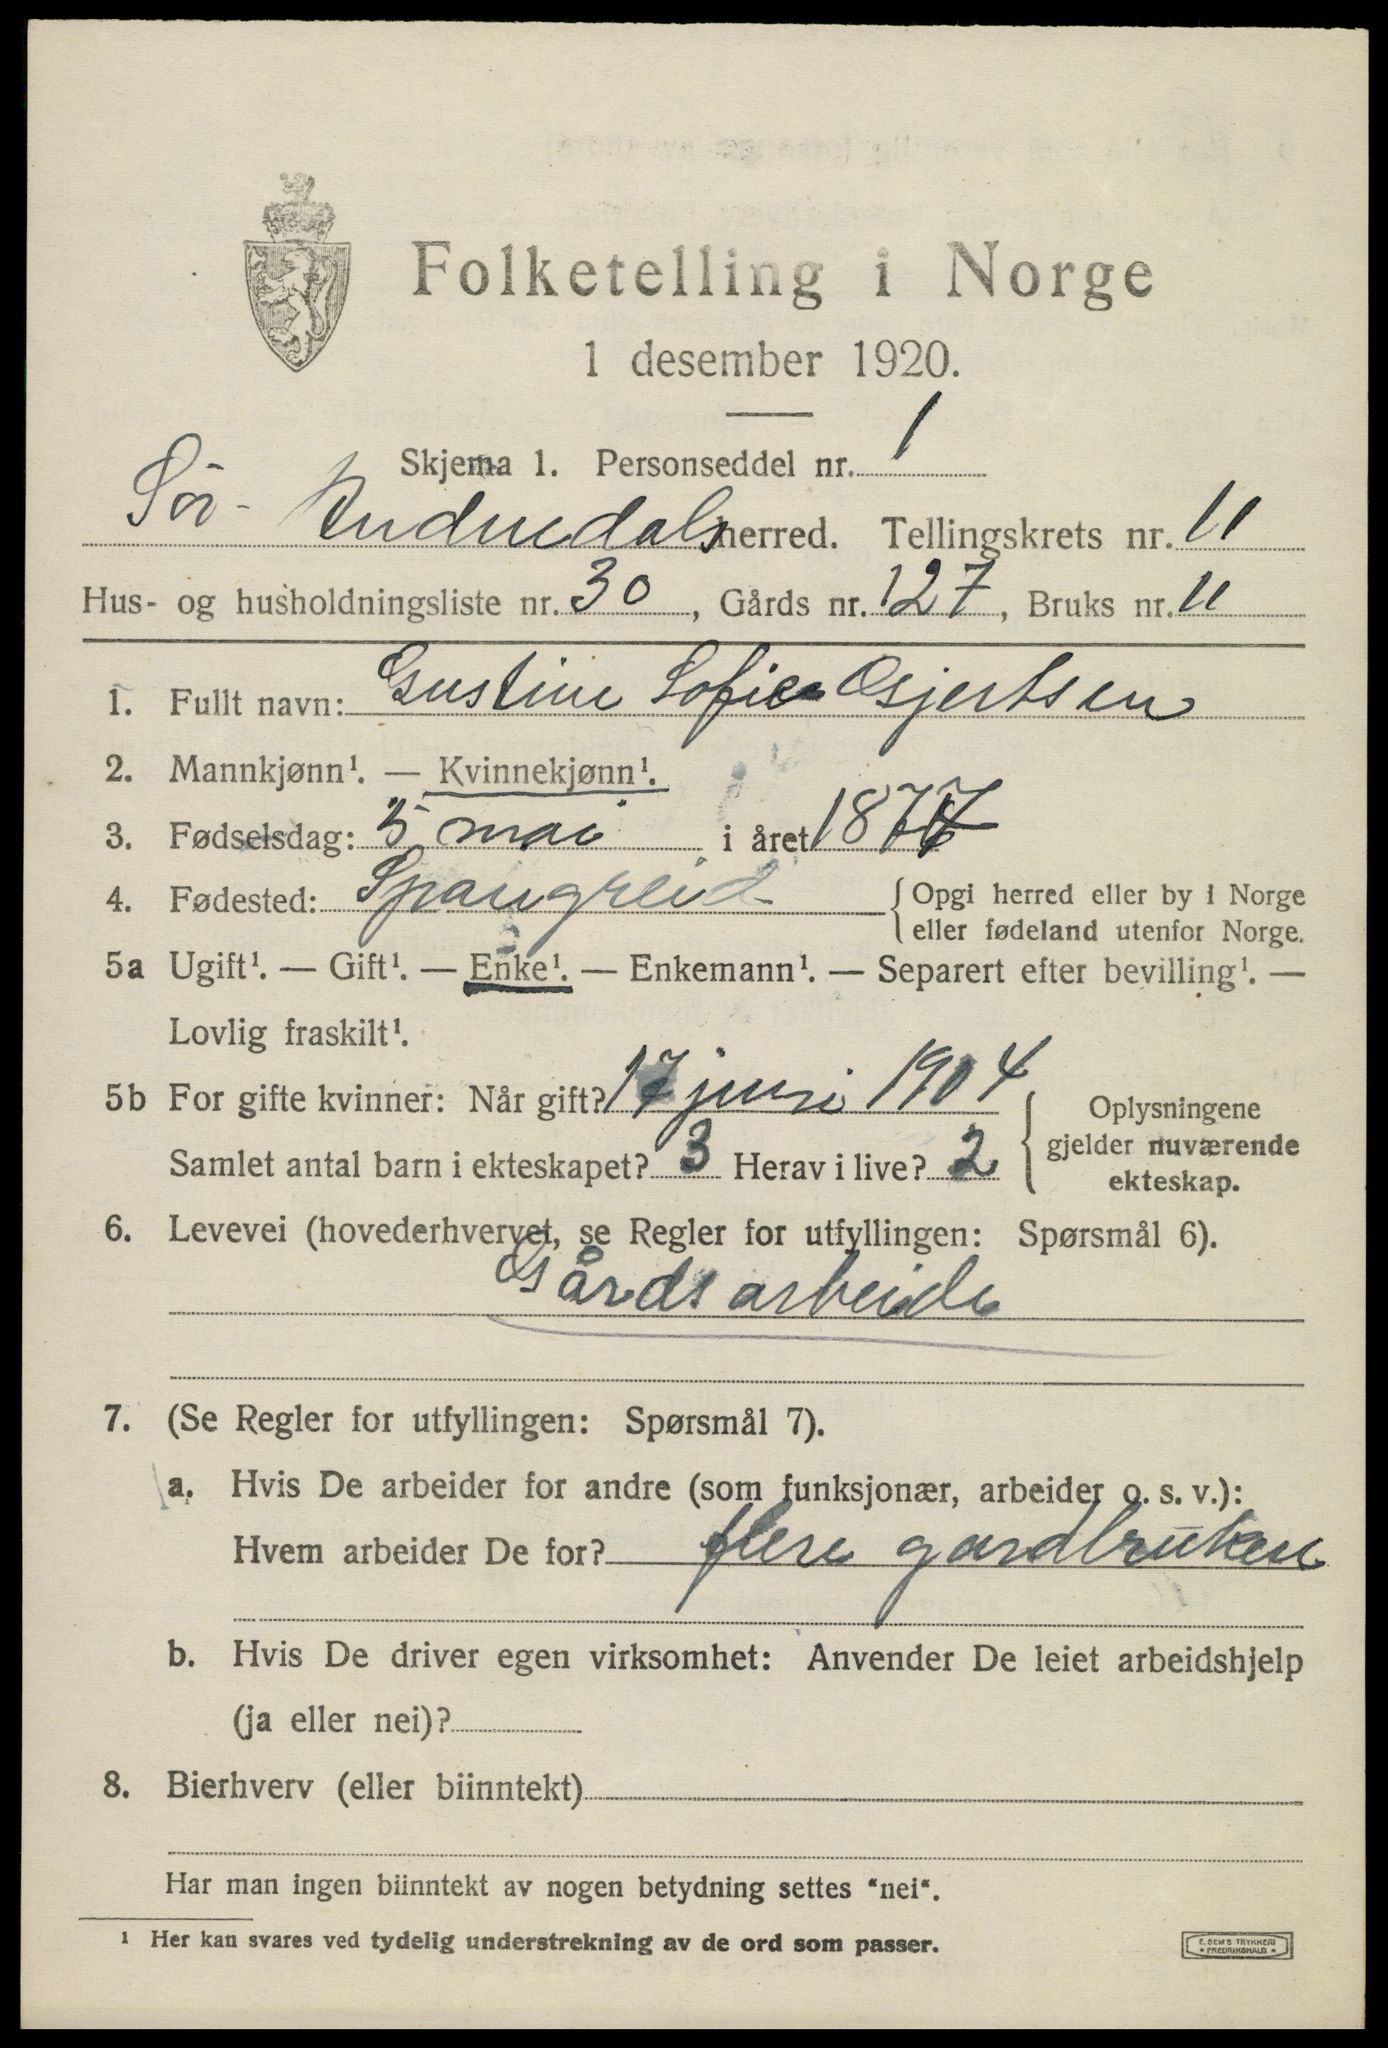 Folketelling i Norge
1 desember 1920.
Skjema 1. Personseddel nr. 1
Sör- Audnedals herred. Tellingskrets nr. 11
Hus- og husholdningsliste nr. 30, Gårds nr. 127, Bruks nr. 11
1. Fullt navn: Gustine Sofie Gjertsen
2. Mannkjønn¹. — Kvinnekjønn¹.
3. Fødselsdag: 5 mai i året 1877
4. Fødested: Spangreid { Opgi herred eller by i Norge
eller fødeland utenfor Norge.
5a Ugift¹. — Gift¹. — Enke¹. — Enkemann¹. — Separert efter bevilling¹. —
Lovlig fraskilt¹.
5b For gifte kvinner: Når gift? 17 juni 1904
Samlet antal barn i ekteskapet? 3 Herav i live? 2
{ Oplysningene
gjelder nuværende
ekteskap.
6. Levevei (hovederhvervet, se Regler for utfyllingen: Spørsmål 6).
Gårdsarbeide
7. (Se Regler for utfyllingen: Spørsmål 7).
a. Hvis De arbeider for andre (som funksjonær, arbeider o. s. v.):
Hvem arbeider De for? flere gardbruken
b. Hvis De driver egen virksomhet: Anvender De leiet arbeidshjelp
(ja eller nei)?
8. Bierhverv (eller biinntekt)
Har man ingen biinntekt av nogen betydning settes "nei".
¹ Her kan svares ved tydelig understrekning av de ord som passer.
E. SEM'S TRYKKERI
* FREDRIKSHALD *